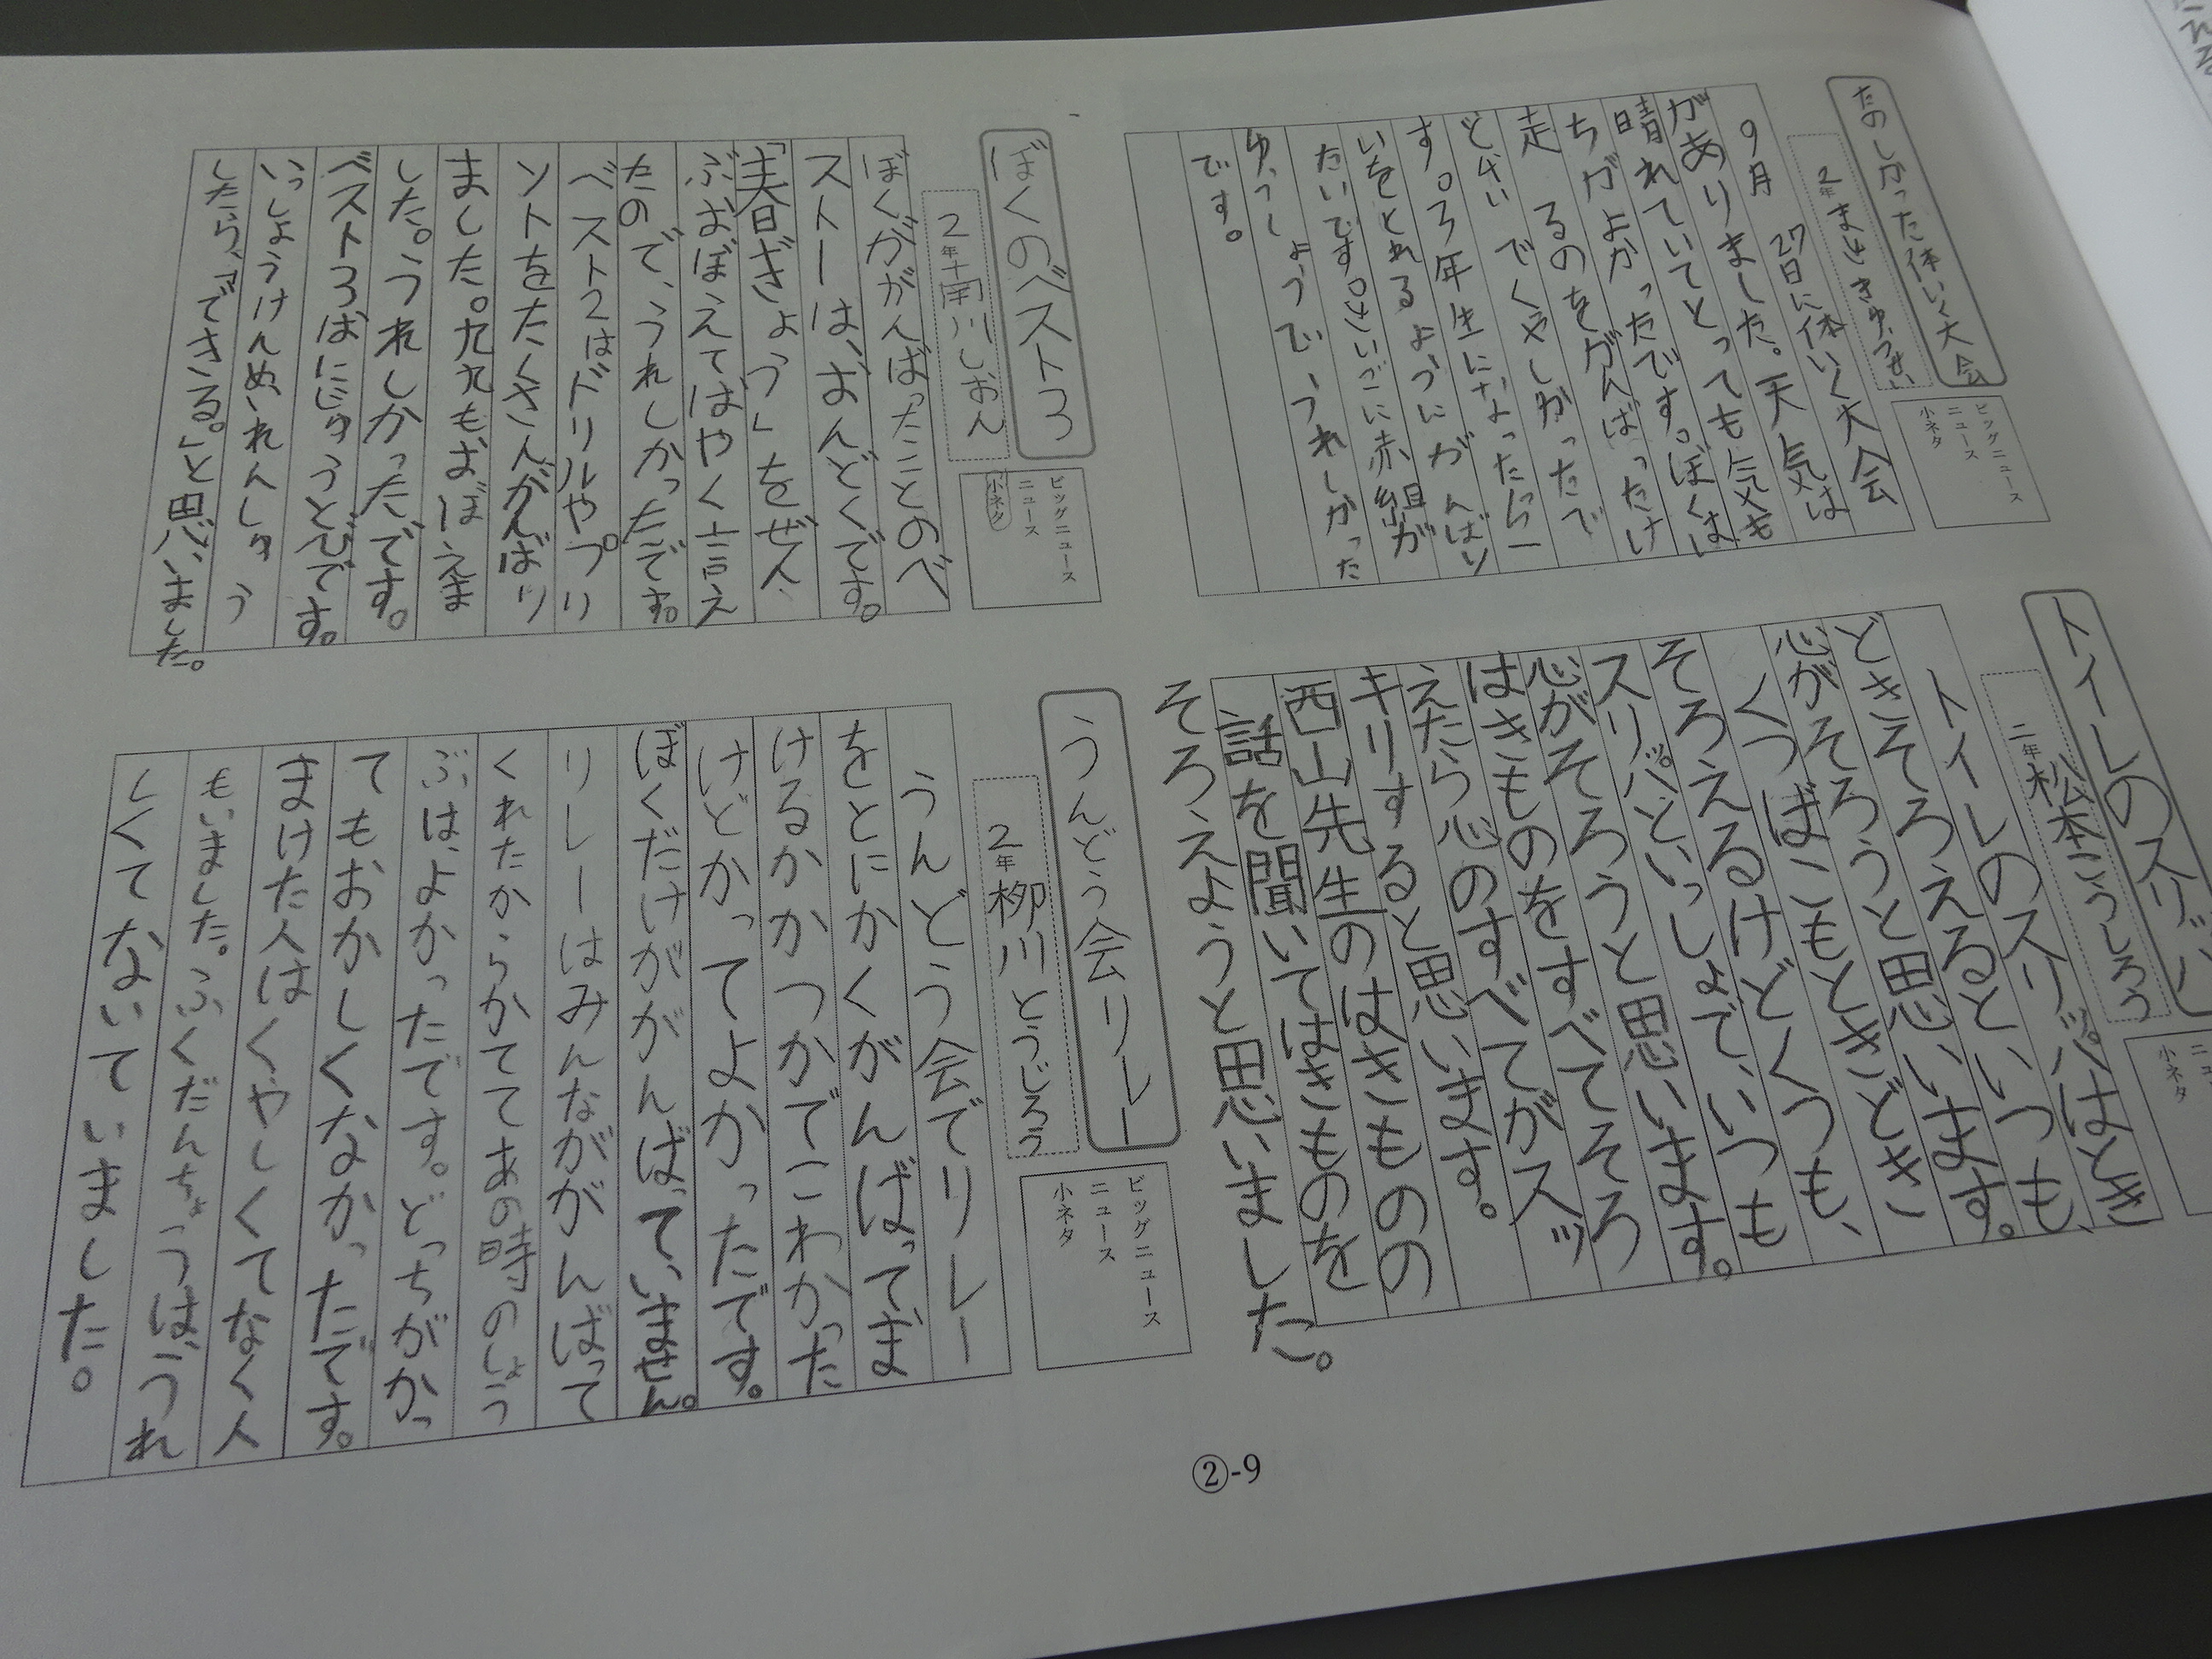 たのしかった体いく大会
2年
9月27日に体いく大会
がありました。天気は
晴れていてとっても気も
ちがよかったです。ぼくは
走るのをがんばったけ
どさい でくやしかったで
す。3年生になったら一
いをとれるようにがんばり
たいです。さいごに赤組が
ゆうしょうで、うれしかった
です。
ビッグニュース
ニュース
小ネタ
トイレのスリッパ
二年 松本こうしろう
トイレのスリッパはとき
どきそろえるといつも、
心がそろうと思います。
くつばこもときどき
そろえるけどくつも、
スリッパといっしょで、いつも
心がそろうと思います。
はきものをすべてそろ
えたら心のすべてがスッ
キリすると思います。
西山先生のはきものの
話を聞いてはきものを
そろえようと思いました。
小ネタ
ぼくのベスト3
2年 南川しおん
ぼくががんばったことのべ
スト一は、おんどくです。
「春ぎょう」をぜん
ぶおぼえてはやく言え
たので、うれしかったです。
ベスト2はドリルやプリ
ントをたくさんがんばり
ました。九九もおぼえま
した。うれしかったです。
ベスト3はにじゅうとびです。
いっしょうけんめいれんしゅう
したら、「できる。」と思いました。
ビッグニュース
ニュース
小ネタ
うんどう会リレー
2年 柳川とうじろう
うんどう会でリレー
をとにかくがんばって、ま
けるかかつかでこわかった
けどかってよかったです。
ぼくだけががんばっていません。
リレーはみんながががんばって
くれたからかててあの時のしょう
ぶは、よかったです。どっちがかっ
てもおかしくなかったです。
まけた人はくやしくてなく人
もいました。ふくだんちょうは、うれ
しくてないていました。
ビッグニュース
ニュース
小ネタ
②-9